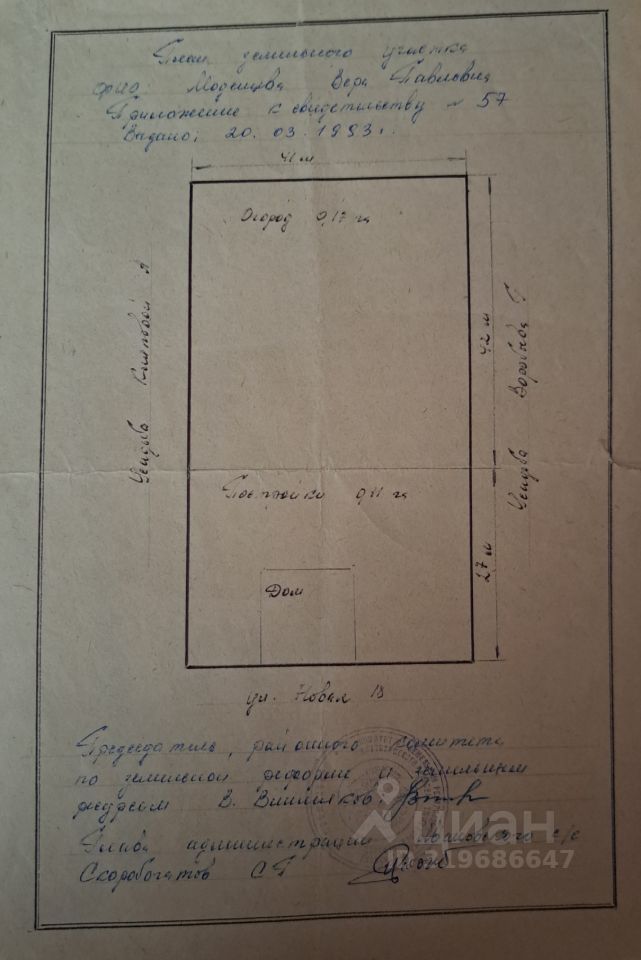 План земельного участка
фио: Вера Павловна
Приложение к свидетельству № 57
Выдано: 20. 03. 1993 г.
41 м
Огород 0,17 га
42 м
Усадьба А
Усадьба Воробьёва Г
Постройки 0,11 га
27 м
Дом
ул. Новая 18
Председатель, районного комитета
по земельной реформе и земельным
ресурсам В. Вишняков
Глава администрации Ивановского с/с
Скоробогатов С Г
циан
319686647